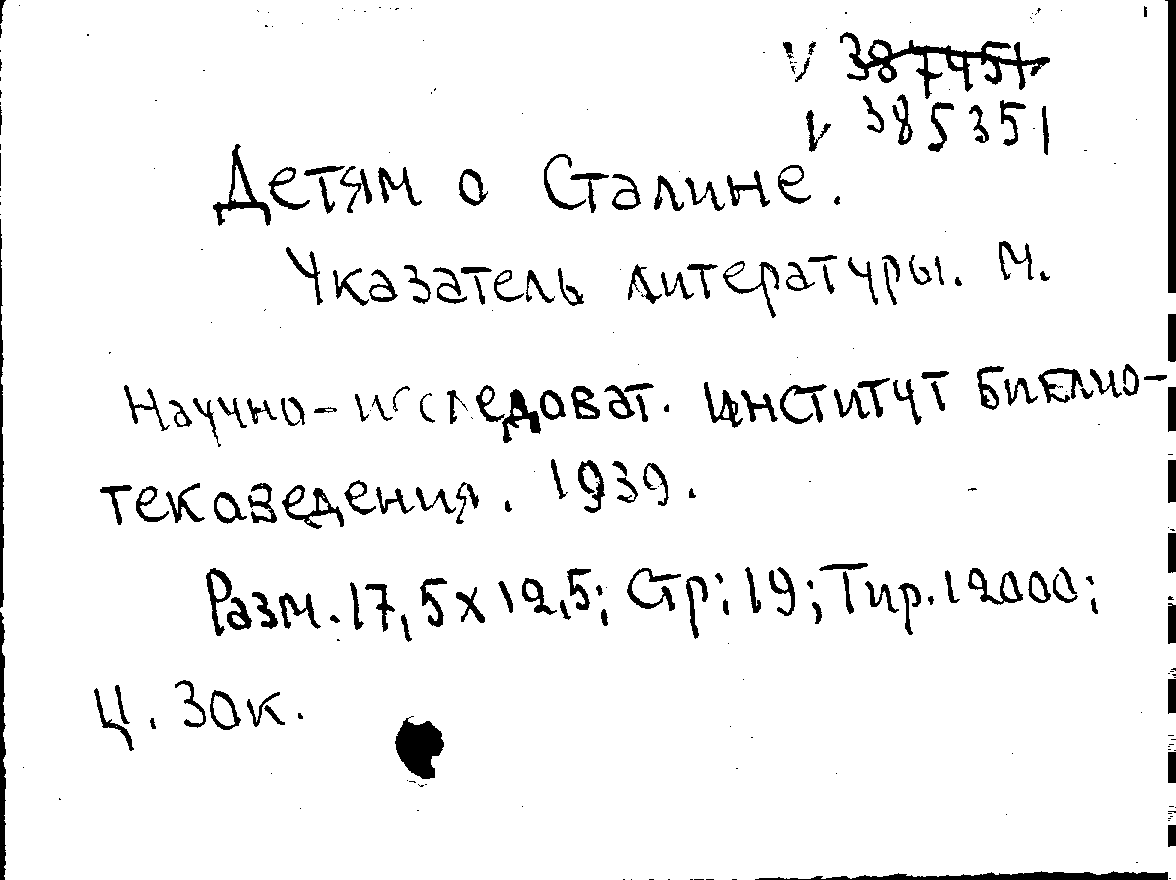 V 387451
V 385351
Детям о Сталине.
Указатель литературы. М.
Научно-исследоват. институт библио-
тековедения. 1939.
Разм. 17,5 x 12,5; Стр: 19; Тир. 12000;
Ц. 30к.